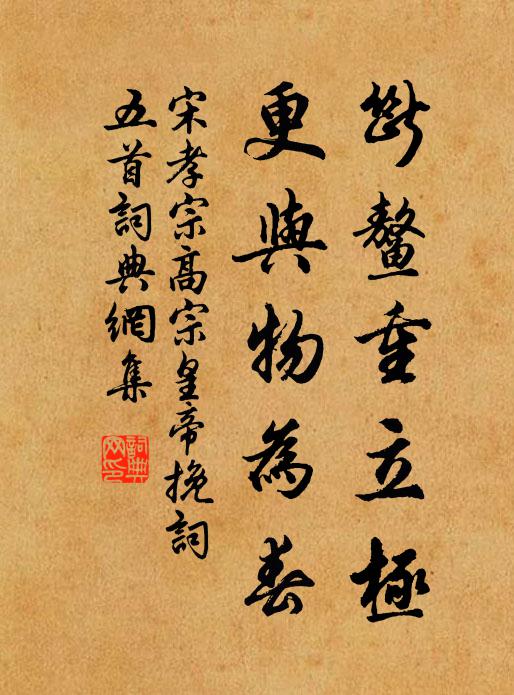 斷鼇重立極
更與物為春
宋孝宗高宗皇帝挽詞
五首詞典網集
詞典
网印